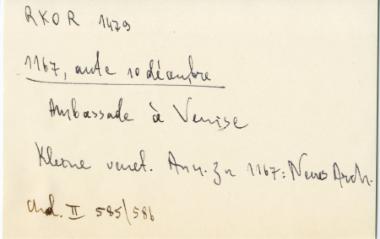 RKOR 1479
1167, ante 10 décembre
Ambassade à Venise
Kleine venet. Ann. zu 1167: Neues Arch.
Chd. II 585/586